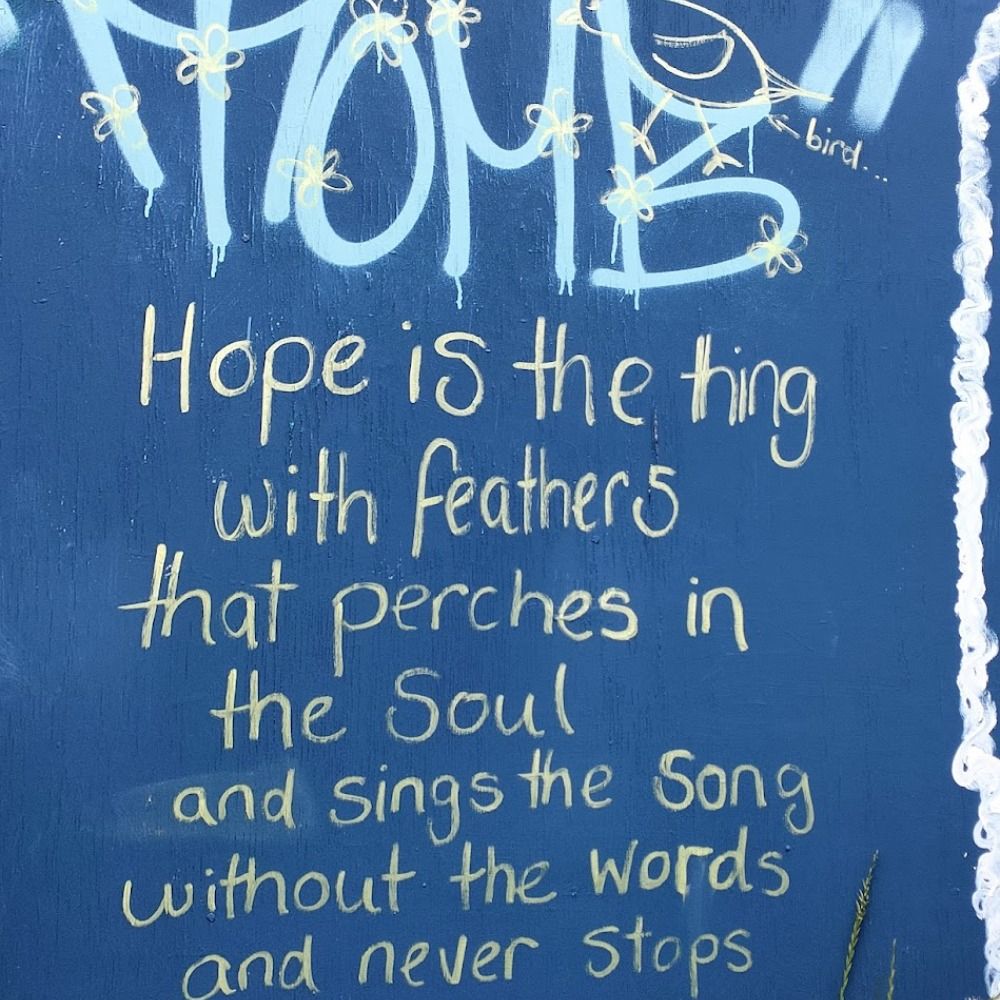 bird...
Hope is the thing
with feathers
that perches in
the Soul
and sings the Song
without the words
and never stops